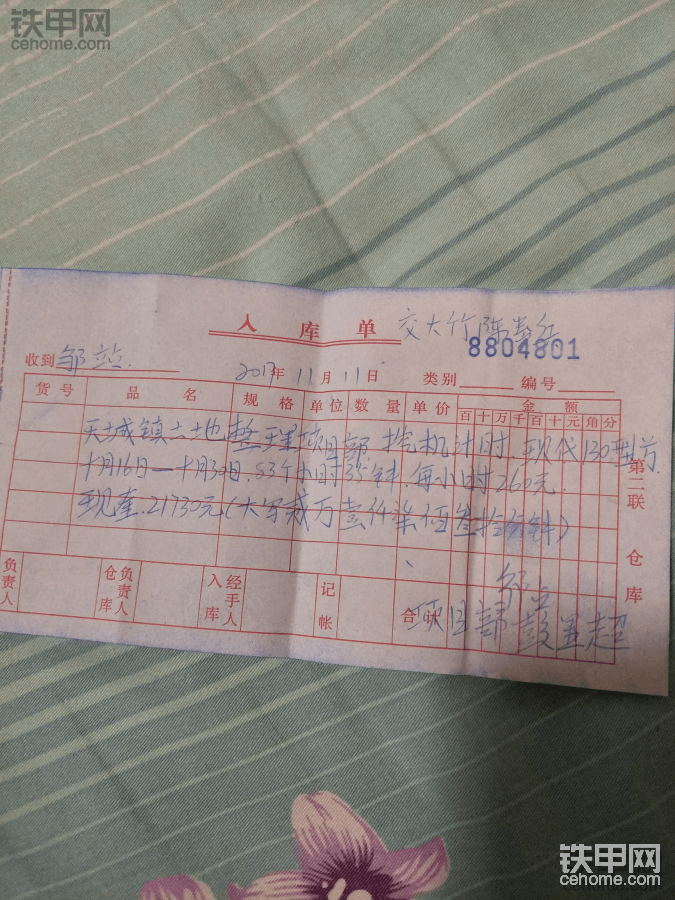 铁甲网
cehome.com
入库单
交大竹陈
8804801
收到邹竝.
2017年11月11日
类别
编号
货号 品名 规格 单位 数量 单价 金额
百十万千百十元角分
天城镇土地整理项目部.挖机计时.现代130型号.
十月16日—十月30日.83个小时35分钟.每小时260元.
现金.21730元(大写贰万壹仟柒佰叁拾
第二联 仓库
负责人 仓库负责人 入库经手人 记帐 合计
邹立
项目部
铁甲网
cehome.com